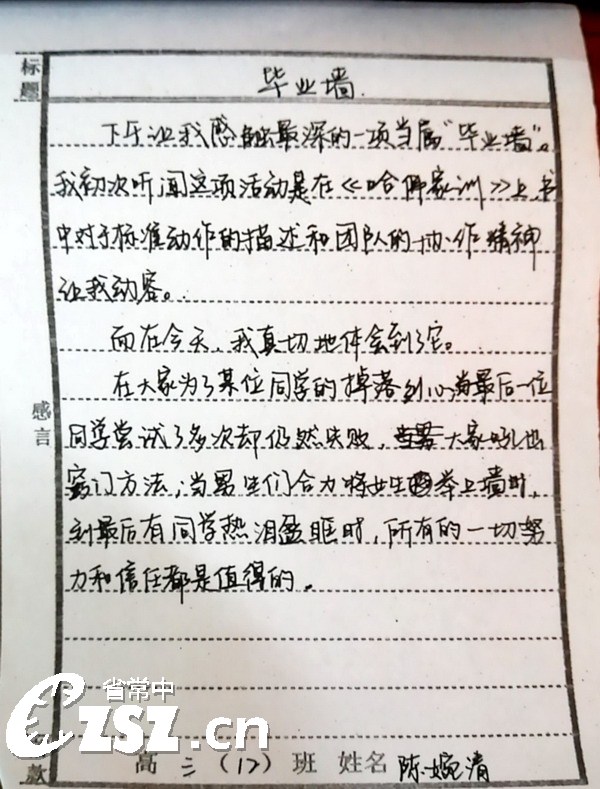 标题
毕业墙.
下午让我感触最深的一项当属“毕业墙”。
我初次听闻这项活动是在《哈佛家训》上,书
中对于标准动作的描述和团队的协作精神
让我动容。
而在今天,我真切地体会到了它。
在大家为了某位同学的掉落到心 当最后一位
同学尝试了多次却仍然失败, 大家吼出
窍门方法;当男生们合力将女生 举上墙时,
到最后有同学热泪盈眶时,所有的一切努
力和信任都是值得的。
感言
省常中
czsz.cn
款
高三(17)班 姓名 陈婉清